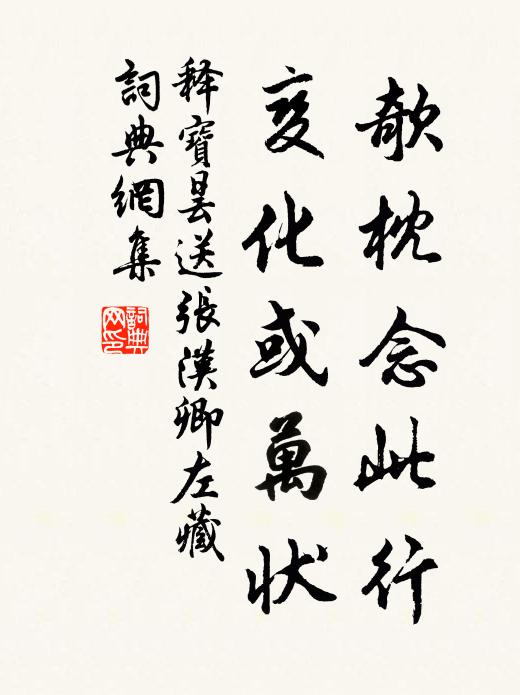 欹枕念此行
变化或萬状
释寶曇送張漢卿左藏
詞典網集
詞典网印